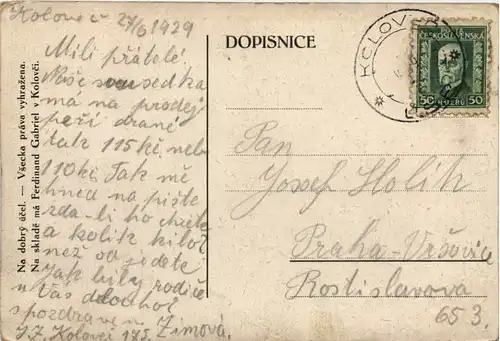 Kolovec 27/6 1929
Milí přátelé
Naše sousedka
má na prodej
peří drané
tak 115 kč. neb
110 kč. Tak mě
hned na pište
zda-li ho chcete
a kolik kilo
než od jedete
Jak byly rodiče
u Vás
s pozdravem Zimová,
Kolovči 175.
DOPISNICE
KOLOVEČ
ČESKOSLOVENSKA
50 HALÉŘŮ 50
Pan
Josef Holík
Praha-Vršovice
Rostislavova
653.
Na dobrý účel. — Všecka práva vyhražena.
Na skladě má Ferdinand Gabriel v Kolovči.